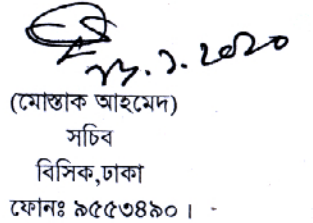 ২৮.১.২০২০
(মোস্তাক আহমেদ)
সচিব
বিসিক,ঢাকা
ফোনঃ ৯৫৫৩৪৯০।